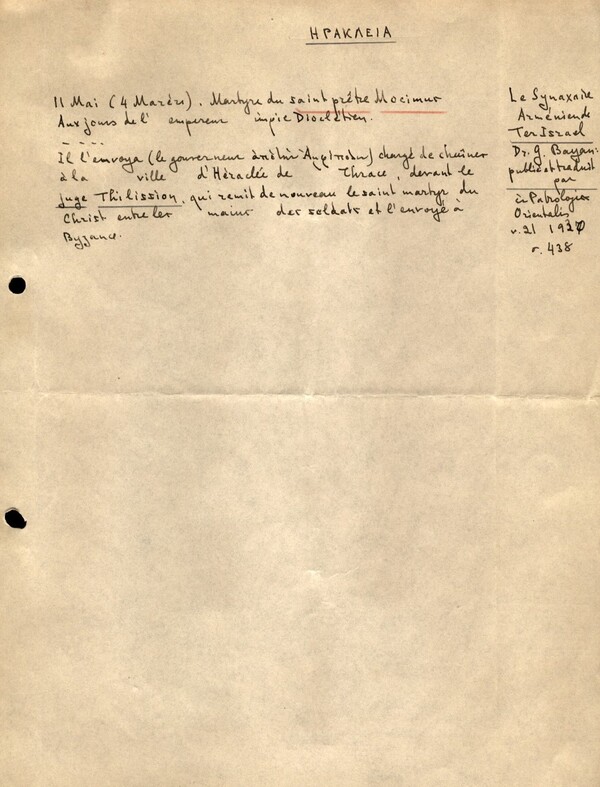 ΗΡΑΚΛΕΙΑ
11 Mai (4 Maréri). Martyre du saint prêtre Mocimus
Aux jours de l' empereur impie Dioclétien.
- - - -
Il l'envoya (le gouverneur ἀπὸ τὴν) chargé de chaînes
à la ville d'Héraclée de Thrace, devant le
juge Thilission, qui remit de nouveau le saint martyr du
Christ entre les mains des soldats et l'envoyé à
Byzance.
Le Synaxaire
Arménien de
Ter Israel
Dr. G. Bayan.
publié et traduit
par
in Patrologia
Orientalis
v. 21 1930
σ. 438